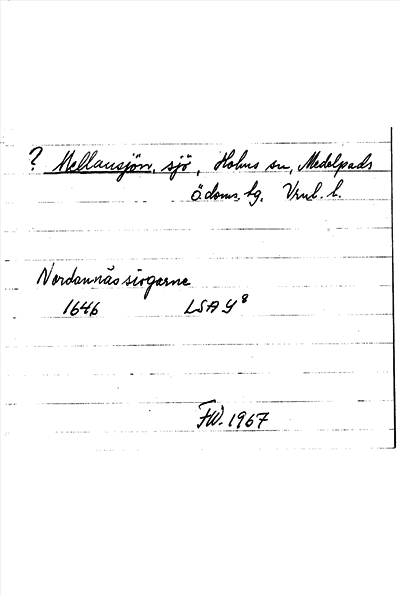 ? Mellansjön, sjö, Holms sn, Medelpads
v. doms. tg, Vrnl. l.
Nordannåssiogarne
1646 LSA Y 8
FW. 1967